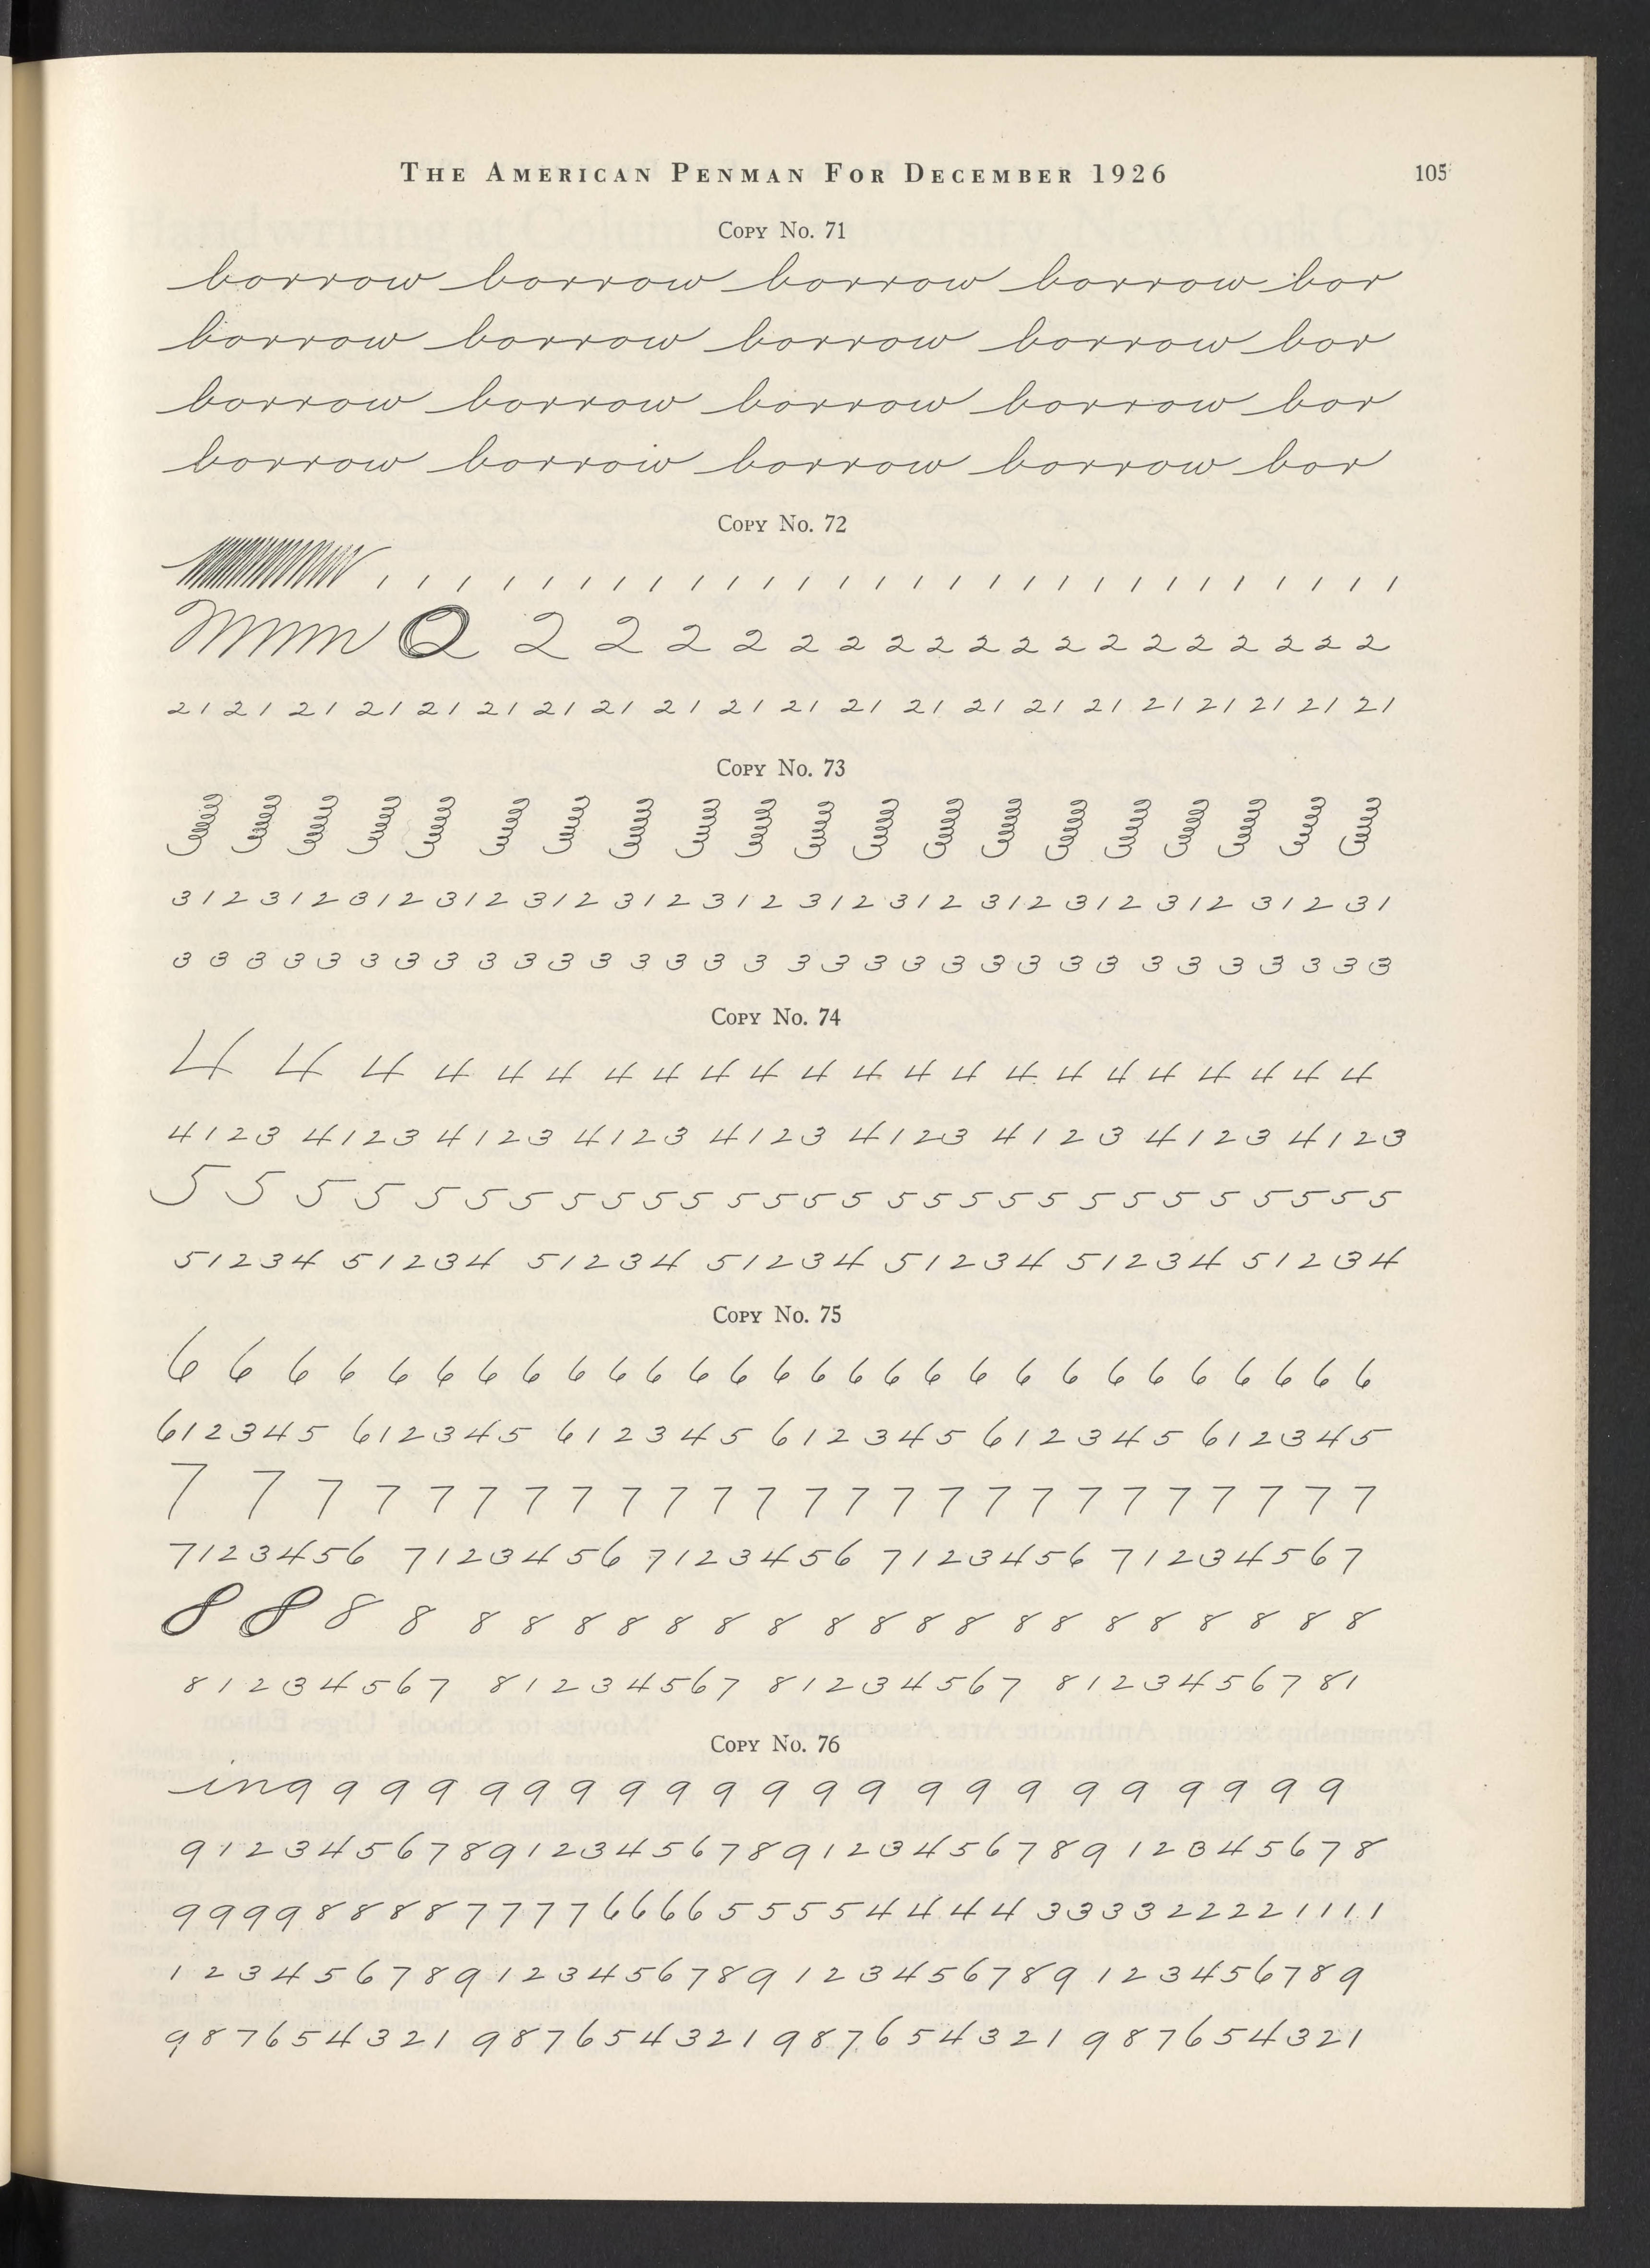 THE AMERICAN PENMAN FOR DECEMBER 1926 105
COPY NO. 71
borrow borrow borrow borrow bor
borrow borrow borrow borrow bor
borrow borrow borrow borrow bor
borrow borrow borrow borrow bor
COPY NO. 72
1 1 1 1 1 1 1 1 1 1 1 1 1 1 1 1 1 1 1 1 1 1 1 1 1 1 1 1
2 2 2 2 2 2 2 2 2 2 2 2 2 2 2 2 2 2 2
21 21 21 21 21 21 21 21 21 21 21 21 21 21 21 21 21 21 21 21 21
COPY NO. 73
312 312 312 312 312 312 312 312 312 312 312 312 312 31
3 3 3 3 3 3 3 3 3 3 3 3 3 3 3 3 3 3 3 3 3 3 3 3 3 3 3 3 3 3 3 3
COPY NO. 74
4 4 4 4 4 4 4 4 4 4 4 4 4 4 4 4 4 4 4 4 4 4
4123 4123 4123 4123 4123 4123 4123 4123 4123
5 5 5 5 5 5 5 5 5 5 5 5 5 5 5 5 5 5 5 5 5 5 5 5 5 5 5 5
51234 51234 51234 51234 51234 51234 51234
COPY NO. 75
6 6 6 6 6 6 6 6 6 6 6 6 6 6 6 6 6 6 6 6 6 6 6 6 6 6 6 6
612345 612345 612345 612345 612345 612345
7 7 7 7 7 7 7 7 7 7 7 7 7 7 7 7 7 7 7 7 7 7 7 7 7
7123456 7123456 7123456 7123456 71234567
8 8 8 8 8 8 8 8 8 8 8 8 8 8 8 8 8 8 8 8 8 8 8
81234567 81234567 81234567 81234567 81
COPY NO. 76
in9 9 9 9 9 9 9 9 9 9 9 9 9 9 9 9 9 9 9 9 9 9
912345678912345678912345678912345678
999988887777666655554444333322221111
123456789123456789123456789123456789
987654321 987654321 987654321 987654321